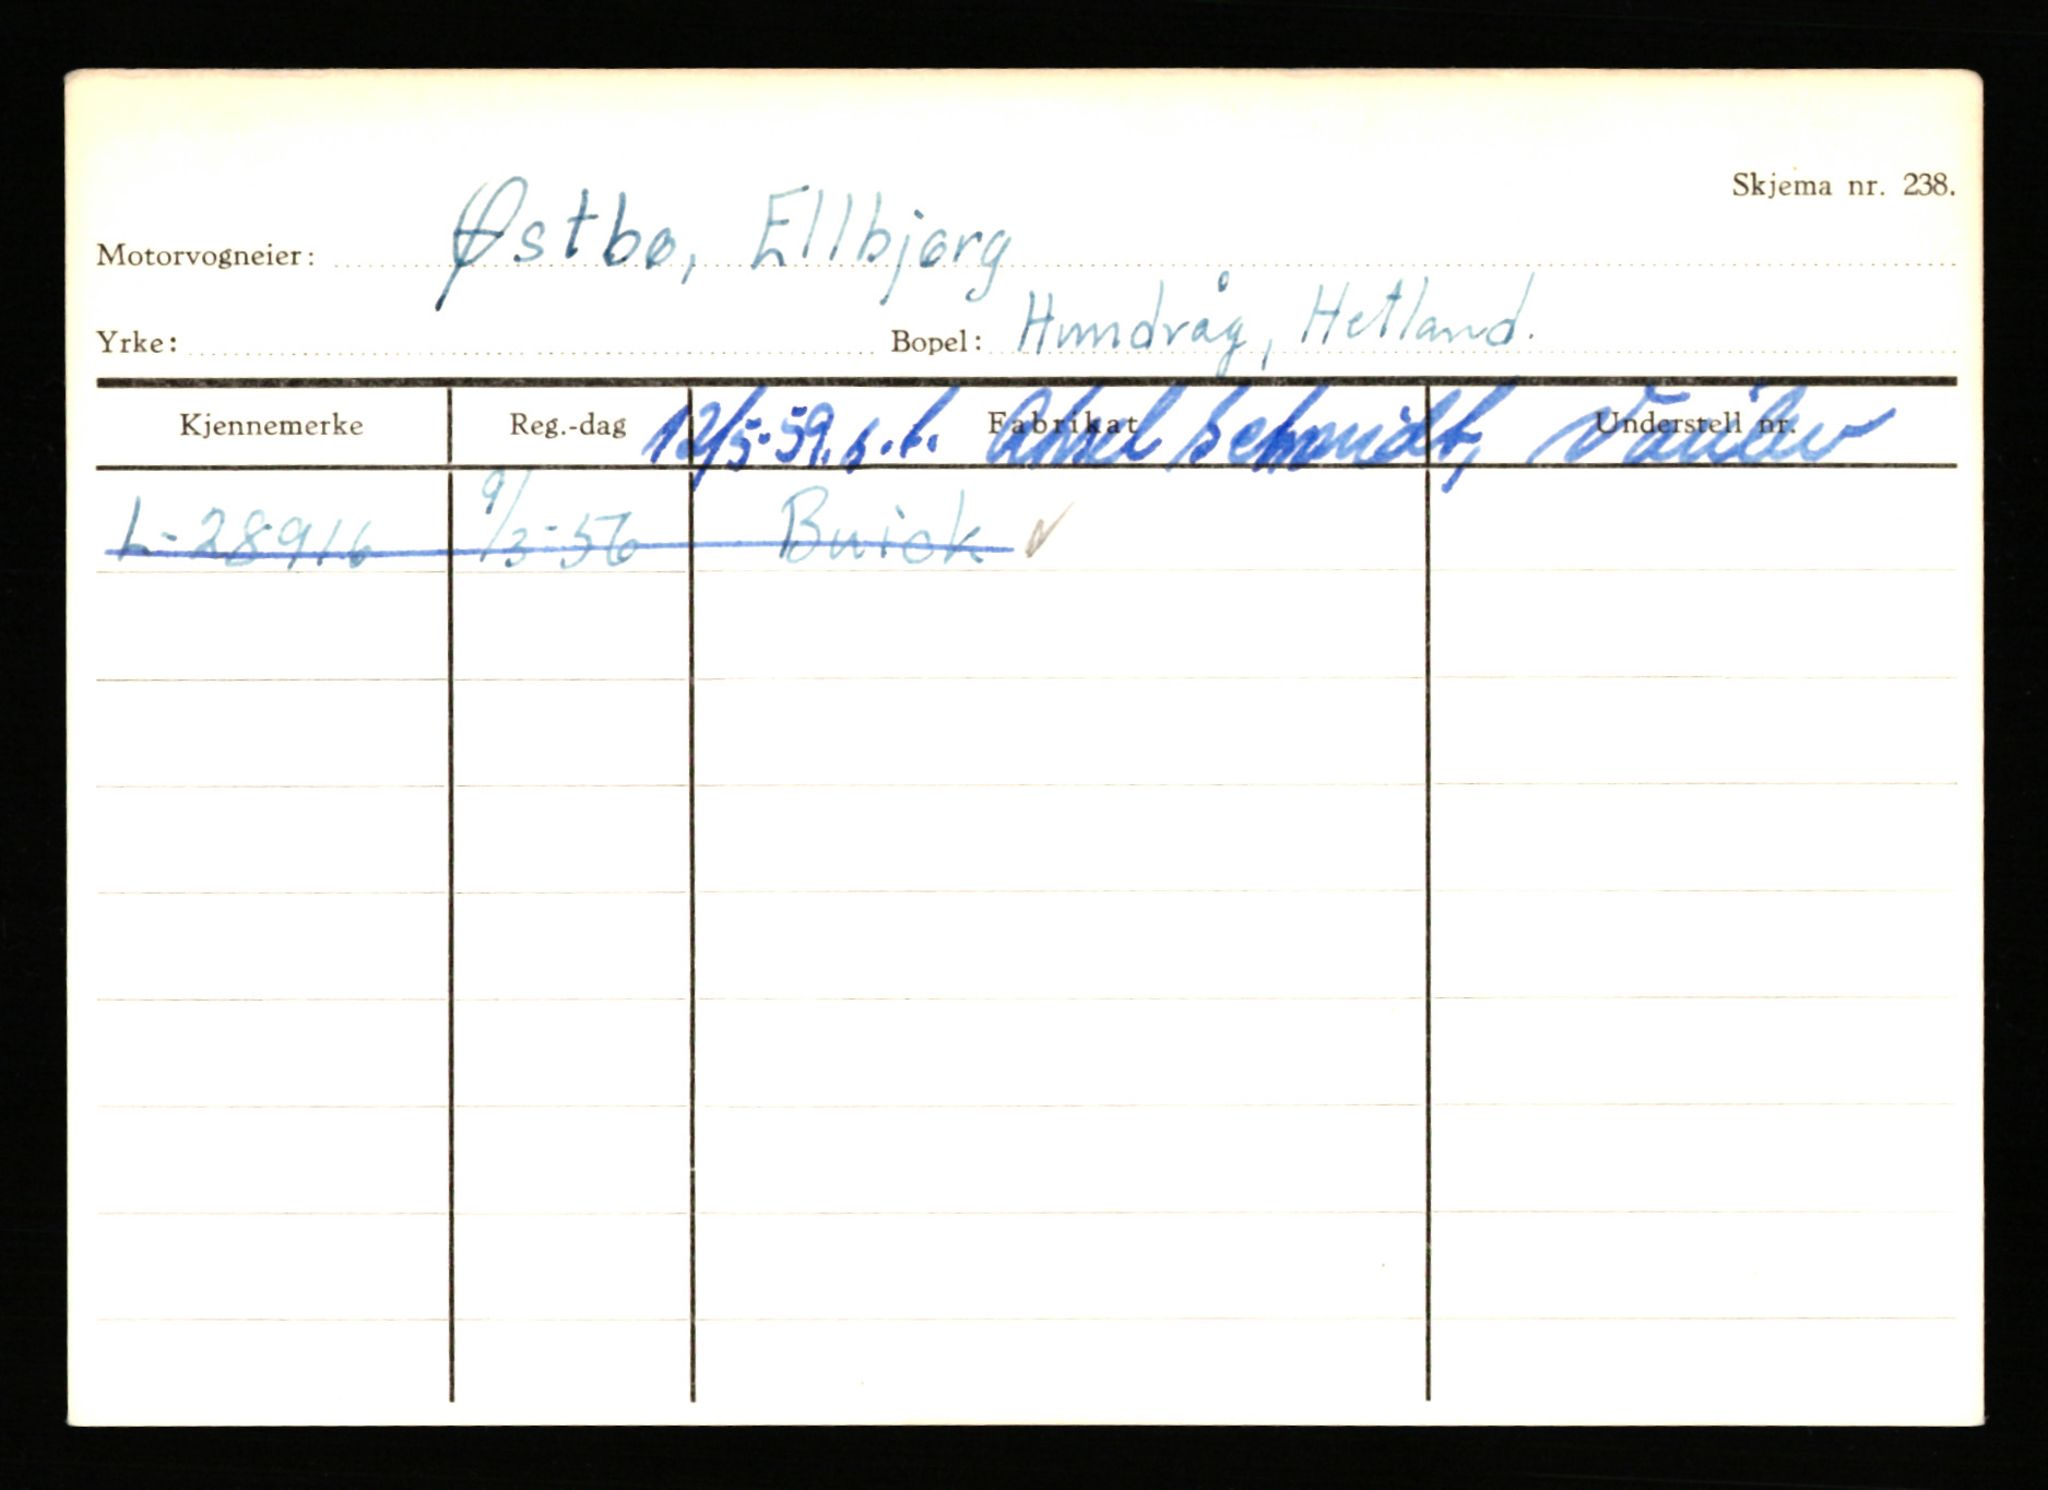 Skjema nr. 238.
Motorvogneier: Østbø, Ellbjørg
Yrke: Bopel: Hundvåg, Hetland.
Kjennemerke Reg.-dag Fabrikat Understell nr.
12/5-59. s.f. Aksel Schmidt,
L-28916 9/3-56 Buick ✓